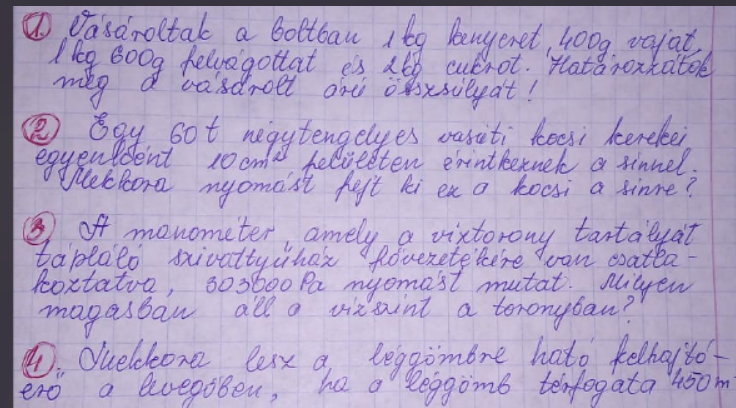 1. Vásároltak a boltban 1 kg kenyeret, 400g vajat,
1 kg 600g felvágottat és 2kg cukrot. Határozzátok
meg a vásárolt áru összsúlyát!
2. Egy 60 t négytengelyes vasúti kocsi kerekei
egyenként 10 cm² felületen érintkeznek a sínnel.
Mekkora nyomást fejt ki ez a kocsi a sínre?
3. A manométer, amely a víztorony tartályát
tápláló szivattyúház fővezetékére van csatla-
koztatva, 303000 Pa nyomást mutat. Milyen
magasban áll a vízszint a toronyban?
4. Mekkora lesz a léggömbre ható felhajtó-
erő a levegőben, ha a léggömb térfogata 450 m